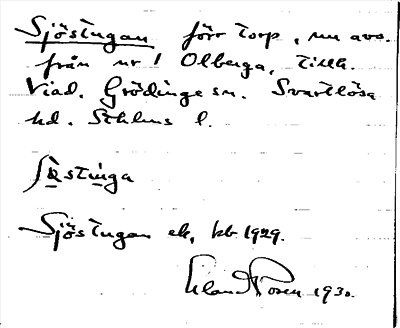 Sjöstugan förr torp, nu avs.
från nr 1 Olberga, tillh.
Viad. Grödinge sn. Svartlösa
hd. Sthlms l.
Sjöstugan ek, kb 1929.
Erland Rosen 1930.